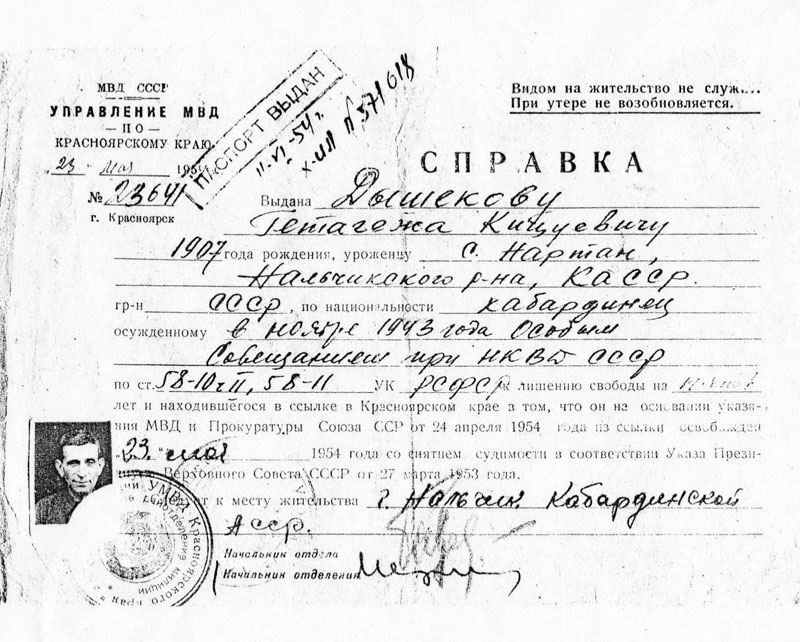 МВД СССР
УПРАВЛЕНИЕ МВД
— ПО —
КРАСНОЯРСКОМУ КРАЮ
„23" мая 195
№ 23641
г. Красноярск
ПАСПОРТ ВЫДАН
11-VI-54 г.
№ 571618
Видом на жительство не
При утере не возобновляется.
СПРАВКА
Выдана Дышекову
Гетагежа Кицуевичу
1907 года рождения, уроженцу с. Нартан,
Нальчикского р-на, КАССР.
гр-н СССР, по национальности кабардинец
осужденному в ноябре 1943 года Особым
Совещанием при НКВД СССР
по ст. 58-10 ч II, 58-11 УК РСФСР к лишению свободы на
лет и находившегося в ссылке в Красноярском крае в том, что он на основании указа-
ния МВД и Прокуратуры Союза ССР от 24 апреля 1954 года из ссылки освобожден
„23" мая 1954 года со снятием судимости в соответствии Указа Прези-
Верховного Совета СССР от 27 марта 1953 года.
к месту жительства г. Нальчик Кабардинской
АССР.
Начальник отдела
Начальник отделения
УМВД Красноярского Края